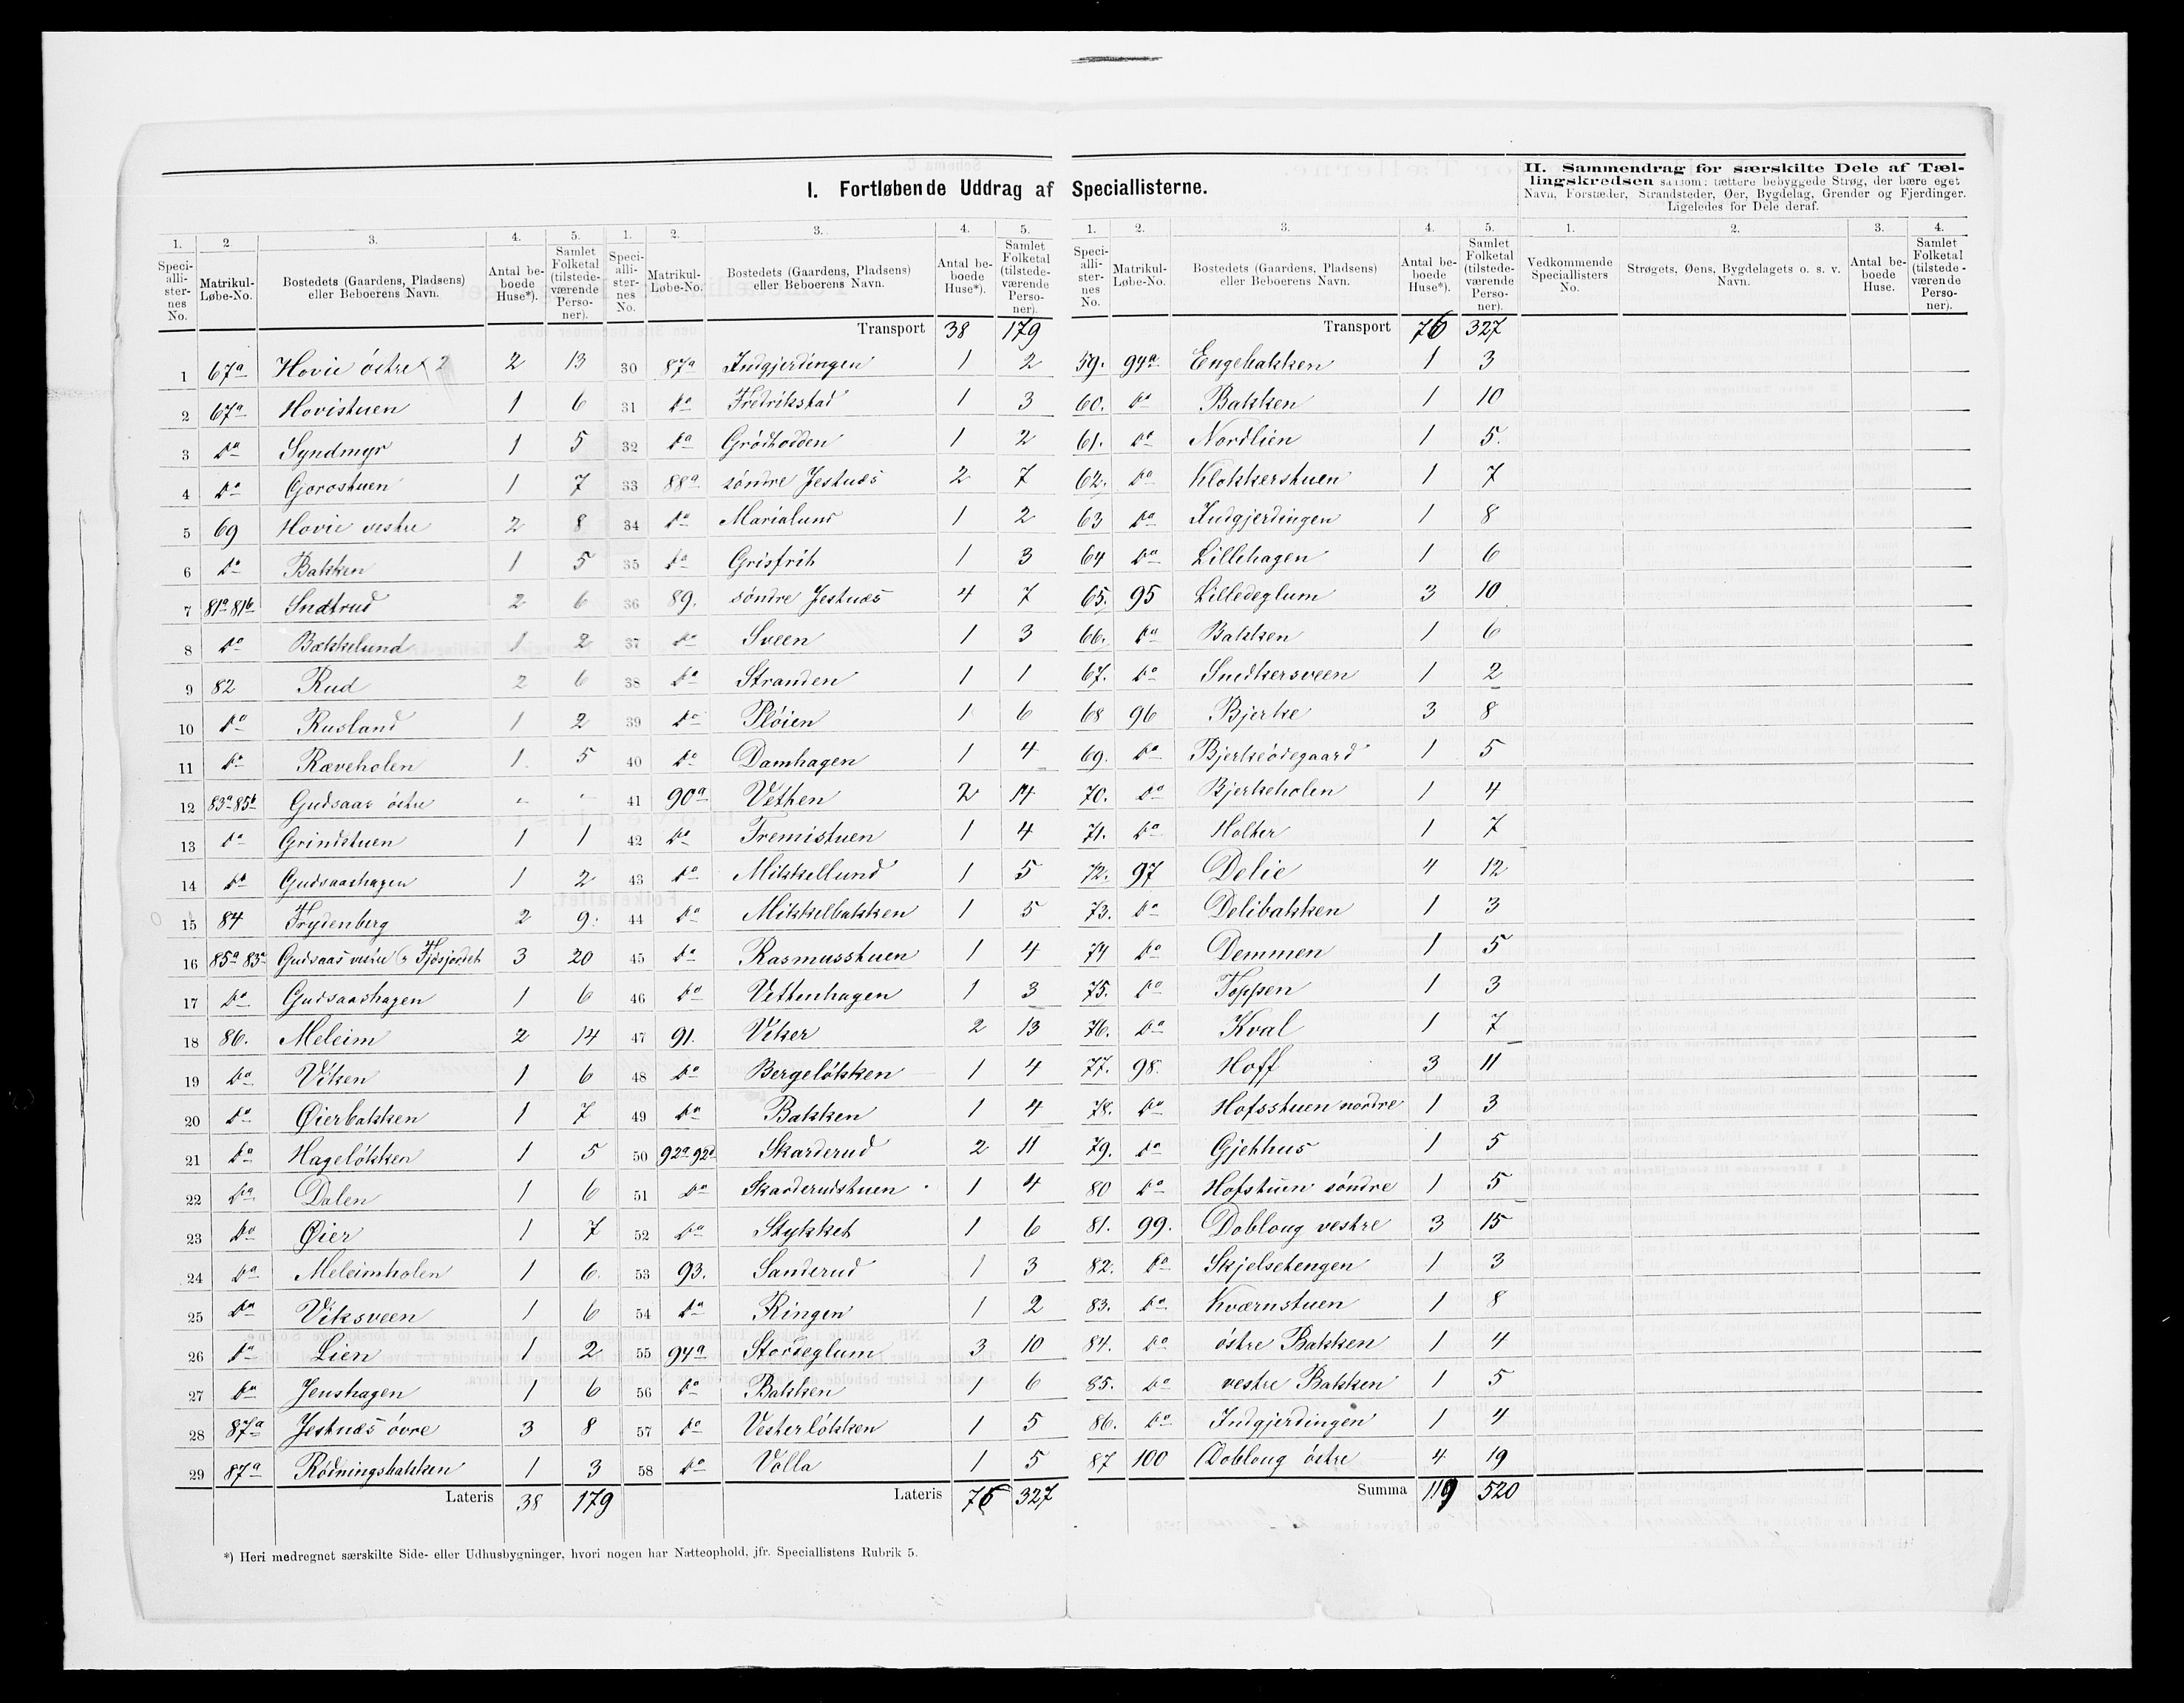 I. Fortløbende Uddrag af Speciallisterne.
II. Sammendrag for særskilte Dele af Tæl-
lingskredsen saasom: tættere bebyggede Strøg, der bære eget
Navn, Forstæder, Strandsteder, Øer, Bygdelag, Grender og Fjerdinger.
Ligeledes for Dele deraf.
1. 2 3. 4. 5.
Speci-alli-ster-nes No. Matrikul-Løbe-No. Bostedets (Gaardens, Pladsens) eller Beboerens Navn. Antal be-boede Huse*). Samlet Folketal (tilstede-værende Perso-ner).
1 67a Hovie östre 2 2 13
2 67a Hovistuen 1 6
3 do Syndmyr 1 5
4 do Gorostuen 1 7
5 69 Hovie vestre 2 8
6 do Bakken 1 5
7 81a 81b Sndtrud 2 6
8 do Bakkelund 1 2
9 82 Rud 2 6
10 do Rusland 1 2
11 do Ræveholen 1 5
12 83a 85b Gudsaas östre - -
13 do Grindstuen 1 1
14 do Gudsaashagen 1 2
15 84 Frydenberg 2 9
16 85a 83b Gudsaas vestre & Fjösjordet 3 20
17 do Gudsaashagen 1 6
18 86. Meleim 2 14
19 do Viken 1 6
20 do Øierbakken 1 7
21 do Hagelökken 1 5
22 do Dalen 1 6
23 do Øier 1 7
24 do Meleimholen 1 6
25 do Viksveen 1 6
26 do Lien 1 2
27 do Jenshagen 1 6
28 87a Jestnæs övre 3 8
29 87a Rödningsbakken 1 3
Lateris 38 179
1. 2. 3. 4. 5.
Speci-alli-ster-nes No. Matrikul-Løbe-No. Bostedets (Gaardens, Pladsens) eller Beboerens Navn. Antal be-boede Huse*). Samlet Folketal (tilstede-værende Perso-ner).
Transport 38 179
30 87a Indgjerdingen 1 2
31 do Fredrikstad 1 3
32 do Grödhodden 1 2
33 88a söndre Jestnæs 2 7
34 do Marialund 1 2
35 do Grisfrit 1 3
36 89. söndre Jestnæs 4 7
37 do Sveen 1 3
38 do Stranden 1 1
39 do Plöien 1 6
40 do Damhagen 1 4
41 90a Vethen 2 14
42 do Fremistuen 1 4
43 do Mikkellund 1 5
44 do Mikkelbakken 1 5
45 do Rasmusstuen 1 4
46 do Vethenhagen 1 3
47 91. Viker 2 13
48 do Bergelökken 1 4
49 do Bakken 1 4
50 92a 92d Skarderud 2 11
51 do Skarderudstuen 1 4
52 do Stykket 1 6
53 93. Sanderud 1 3
54 do Ringen 1 2
55 94a Stordeglum 3 10
56 do Bakken 1 6
57 do Vesterlökken 1 5
58 do Volla 1 5
Lateris 76 327
1. 2. 3. 4. 5.
Speci-alli-ster-nes No. Matrikul-Løbe-No. Bostedets (Gaardens, Pladsens) eller Beboerens Navn. Antal be-boede Huse*). Samlet Folketal (tilstede-værende Perso-ner).
Transport 76 327
59. 94a Engebakken 1 3
60. do Bakken 1 10
61. do Nordlien 1 5.
62. do Klokkerstuen 1 7
63 do Indgjerdingen 1 8
64 do Lillehagen 1 6
65. 95 Lilledeglum 3 10
66. do Bakken 1 6
67. do Snedkersveen 1 2
68 96 Bjerke 3 8
69. do Bjerkeödegaard 1 5
70. do Bjerkeholen 1 4
71. do Holter 1 7
72. 97 Delie 4 12
73. do Delibakken 1 3
74 do Demmen 1 5
75. do Toppen 1 3
76. do Kval 1 7
77. 98. Hoff 3 11
78. do Hofsstuen nordre 1 3
79. do Gjethus 1 5
80 do Hofstuen söndre 1 5
81. 99. Dobloug vestre 3 15
82. do Skjelsetengen 1 3
83. do Kværnstuen 1 8
84. do östre Bakken 1 4
85. do vestre Bakken 1 5
86. do Indgjerdingen 1 4
87 100 Dobloug östre 4 19
Summa 119 520
1. 2. 3. 4.
Vedkommende Speciallisters No. Strøgets, Øens, Bygdelagets o. s. v. Navn. Antal be-boede Huse. Samlet Folketal (tilstede-værende Perso-ner).
*) Heri medregnet særskilte Side- eller Udhusbygninger, hvori nogen har Natteophold, jfr. Speciallistens Rubrik 5.